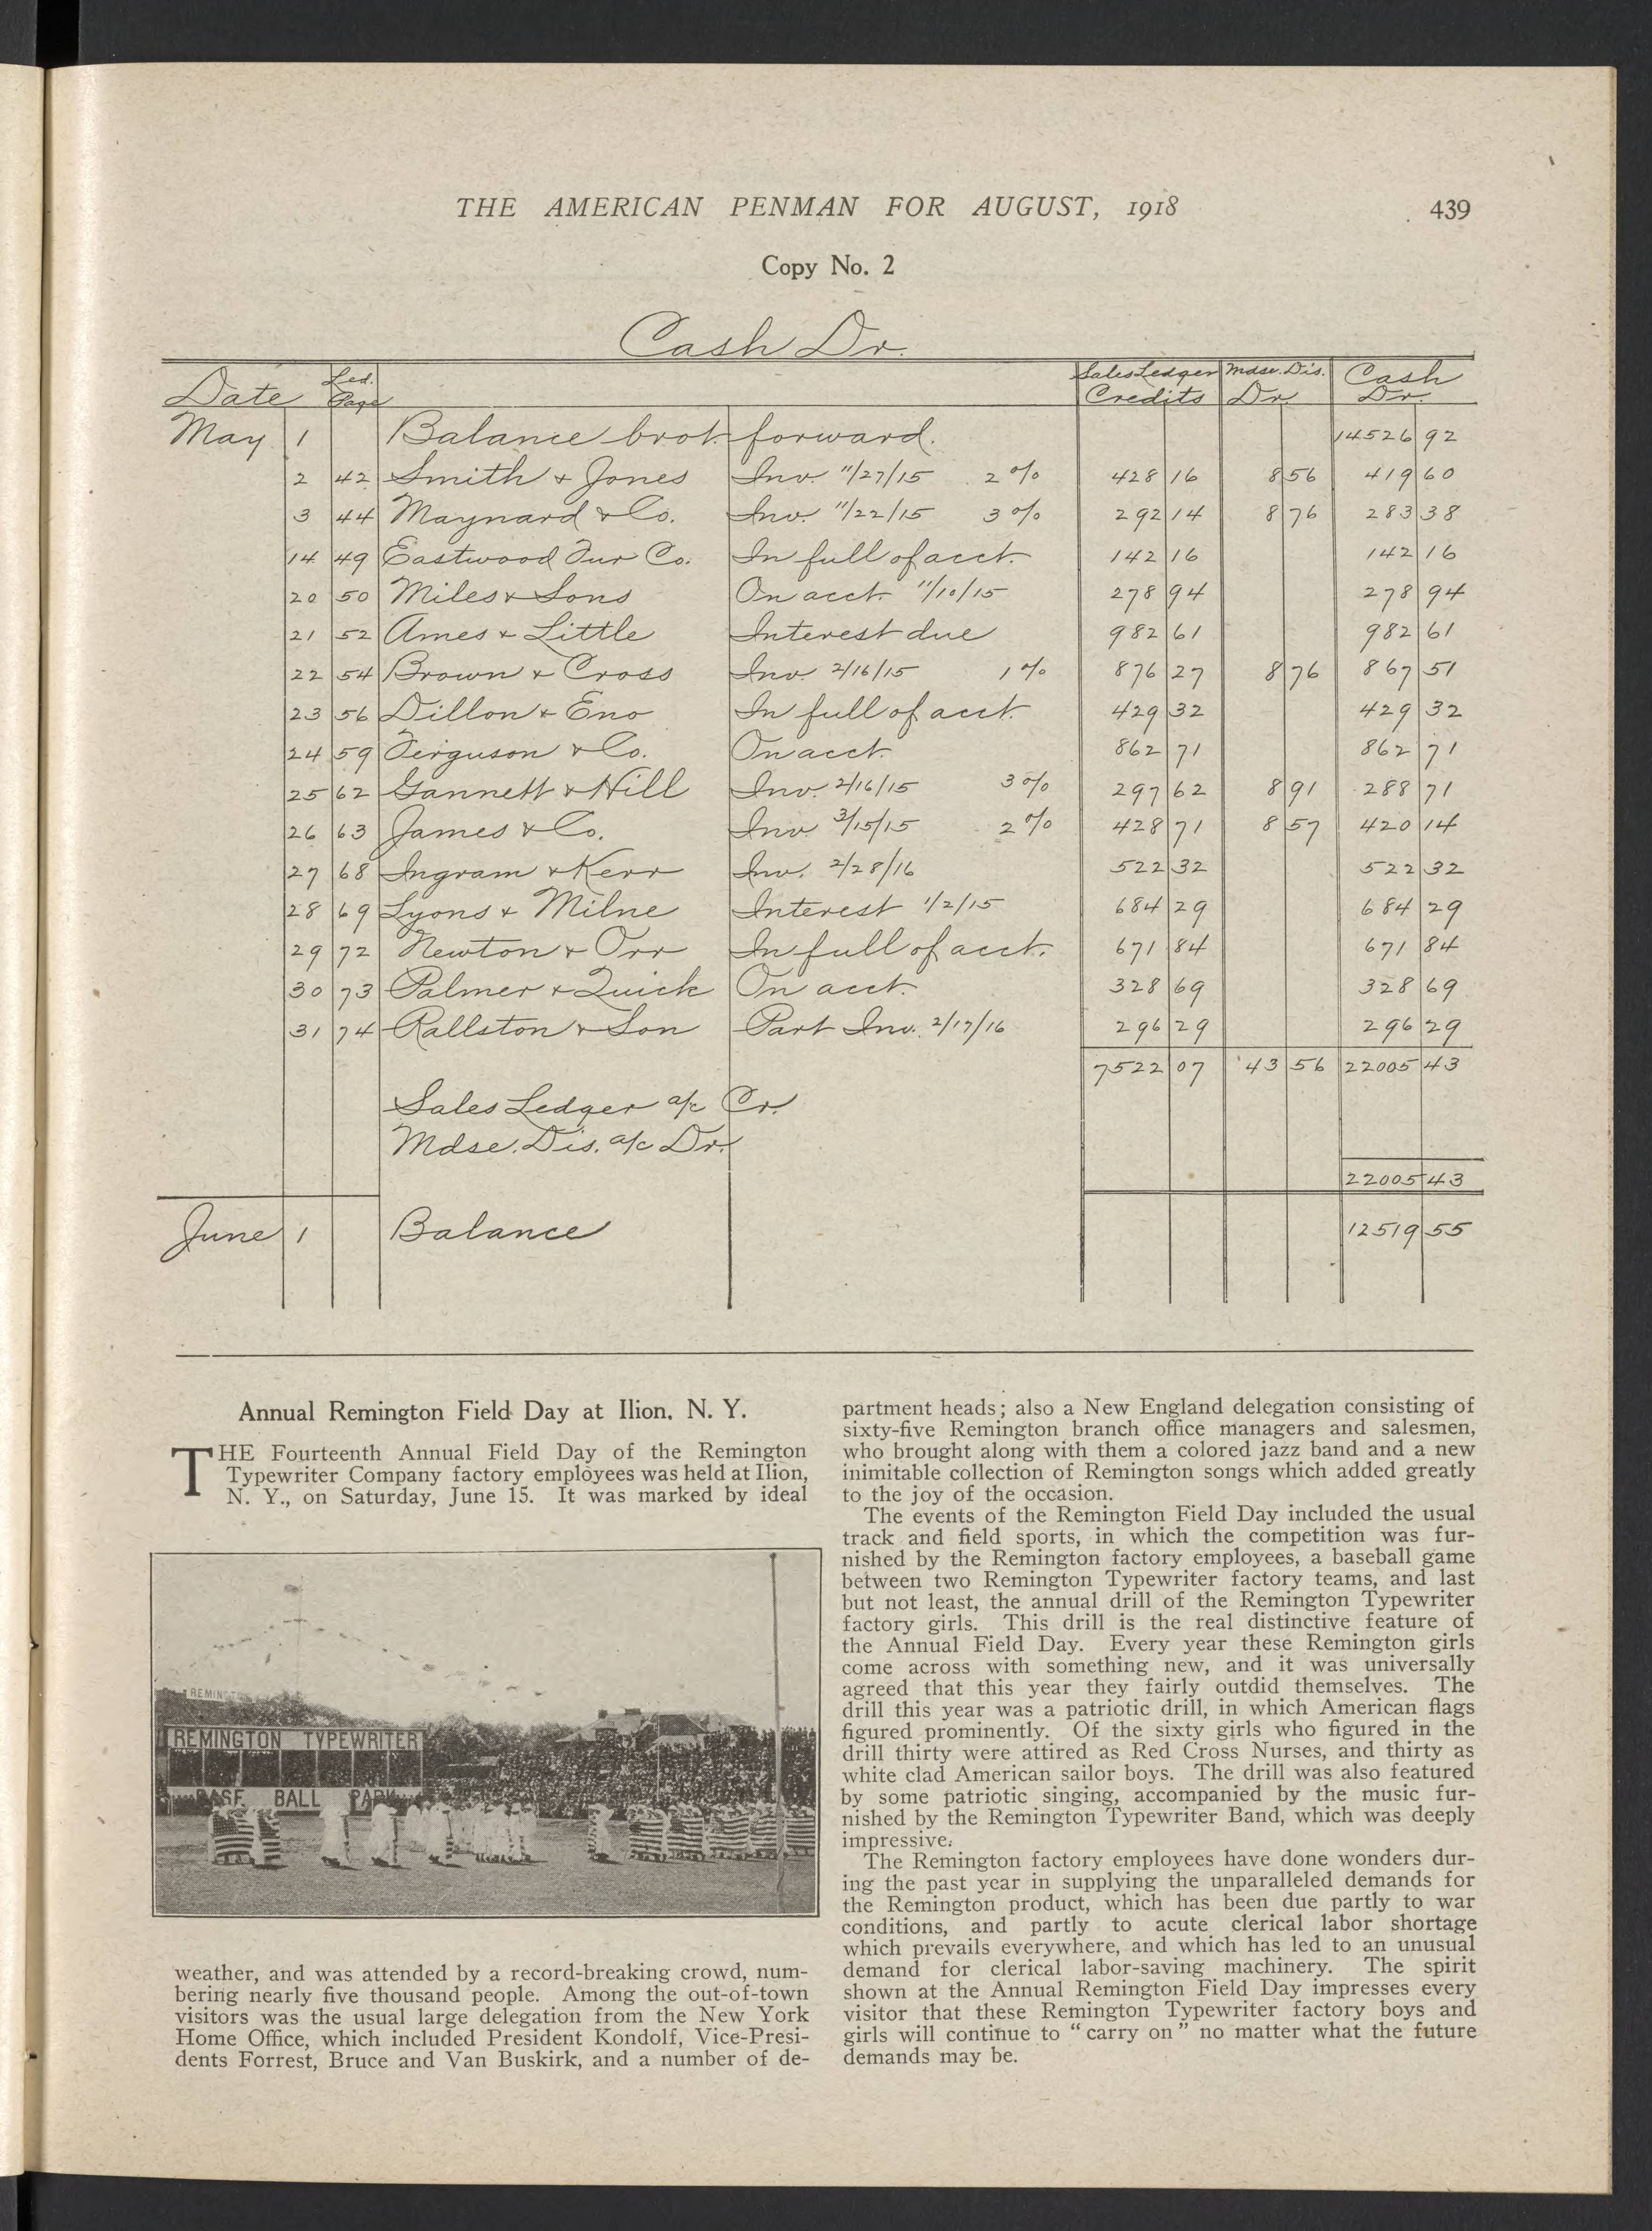 THE AMERICAN PENMAN FOR AUGUST, 1918 439
Copy No. 2
Cash Dr.
Date Led. Page Sales Ledger Credits Mdse. Dis. Dr. Cash Dr.
May 1 Balance brot. forward. 14526 92
2 42 Smith & Jones Inv. 11/27/15 2% 428 16 8 56 419 60
3 44 Maynard & Co. Inv. 11/22/15 3% 292 14 8 76 283 38
14 49 Eastwood Fur Co. In full of acct. 142 16 142 16
20 50 Miles & Sons On acct. 11/10/15 278 94 278 94
21 52 Ames & Little Interest due 982 61 982 61
22 54 Brown & Cross Inv. 2/16/15 1% 876 27 8 76 867 51
23 56 Dillon & Eno In full of acct. 429 32 429 32
24 59 Ferguson & Co. On acct. 862 71 862 71
25 62 Gannett & Hill Inv. 2/16/15 3% 297 62 8 91 288 71
26 63 James & Co. Inv 3/15/15 2% 428 71 8 57 420 14
27 68 Ingram & Kerr Inv. 2/28/16 522 32 522 32
28 69 Lyons & Milne Interest 1/2/15 684 29 684 29
29 72 Newton & Orr In full of acct. 671 84 671 84
30 73 Palmer & Quick On acct. 328 69 328 69
31 74 Rallston & Son Part Inv. 2/17/16 296 29 296 29
7522 07 43 56 22005 43
Sales Ledger a/c Cr.
Mdse. Dis. a/c Dr.
22005 43
June 1 Balance 12519 55
Annual Remington Field Day at Ilion, N. Y.
THE Fourteenth Annual Field Day of the Remington
Typewriter Company factory employees was held at Ilion,
N. Y., on Saturday, June 15. It was marked by ideal
REMINGTON TYPEWRITER
BASE BALL PARK
weather, and was attended by a record-breaking crowd, num-
bering nearly five thousand people. Among the out-of-town
visitors was the usual large delegation from the New York
Home Office, which included President Kondolf, Vice-Presi-
dents Forrest, Bruce and Van Buskirk, and a number of de-
partment heads; also a New England delegation consisting of
sixty-five Remington branch office managers and salesmen,
who brought along with them a colored jazz band and a new
inimitable collection of Remington songs which added greatly
to the joy of the occasion.
The events of the Remington Field Day included the usual
track and field sports, in which the competition was fur-
nished by the Remington factory employees, a baseball game
between two Remington Typewriter factory teams, and last
but not least, the annual drill of the Remington Typewriter
factory girls. This drill is the real distinctive feature of
the Annual Field Day. Every year these Remington girls
come across with something new, and it was universally
agreed that this year they fairly outdid themselves. The
drill this year was a patriotic drill, in which American flags
figured prominently. Of the sixty girls who figured in the
drill thirty were attired as Red Cross Nurses, and thirty as
white clad American sailor boys. The drill was also featured
by some patriotic singing, accompanied by the music fur-
nished by the Remington Typewriter Band, which was deeply
impressive.
The Remington factory employees have done wonders dur-
ing the past year in supplying the unparalleled demands for
the Remington product, which has been due partly to war
conditions, and partly to acute clerical labor shortage
which prevails everywhere, and which has led to an unusual
demand for clerical labor-saving machinery. The spirit
shown at the Annual Remington Field Day impresses every
visitor that these Remington Typewriter factory boys and
girls will continue to "carry on" no matter what the future
demands may be.